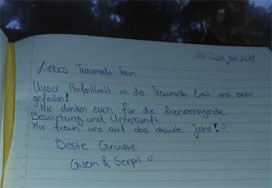 Juli 2018
Liebes Traumela Team
Unser Aufenthalt in des Traumela hat uns sehr
gefallen!
Wir danken euch für die hervorragende
Bewirtung und Unterkunft.
Wir freuen uns auf das nächste Jahr!
Beste Grüsse
Gizem & Serpil